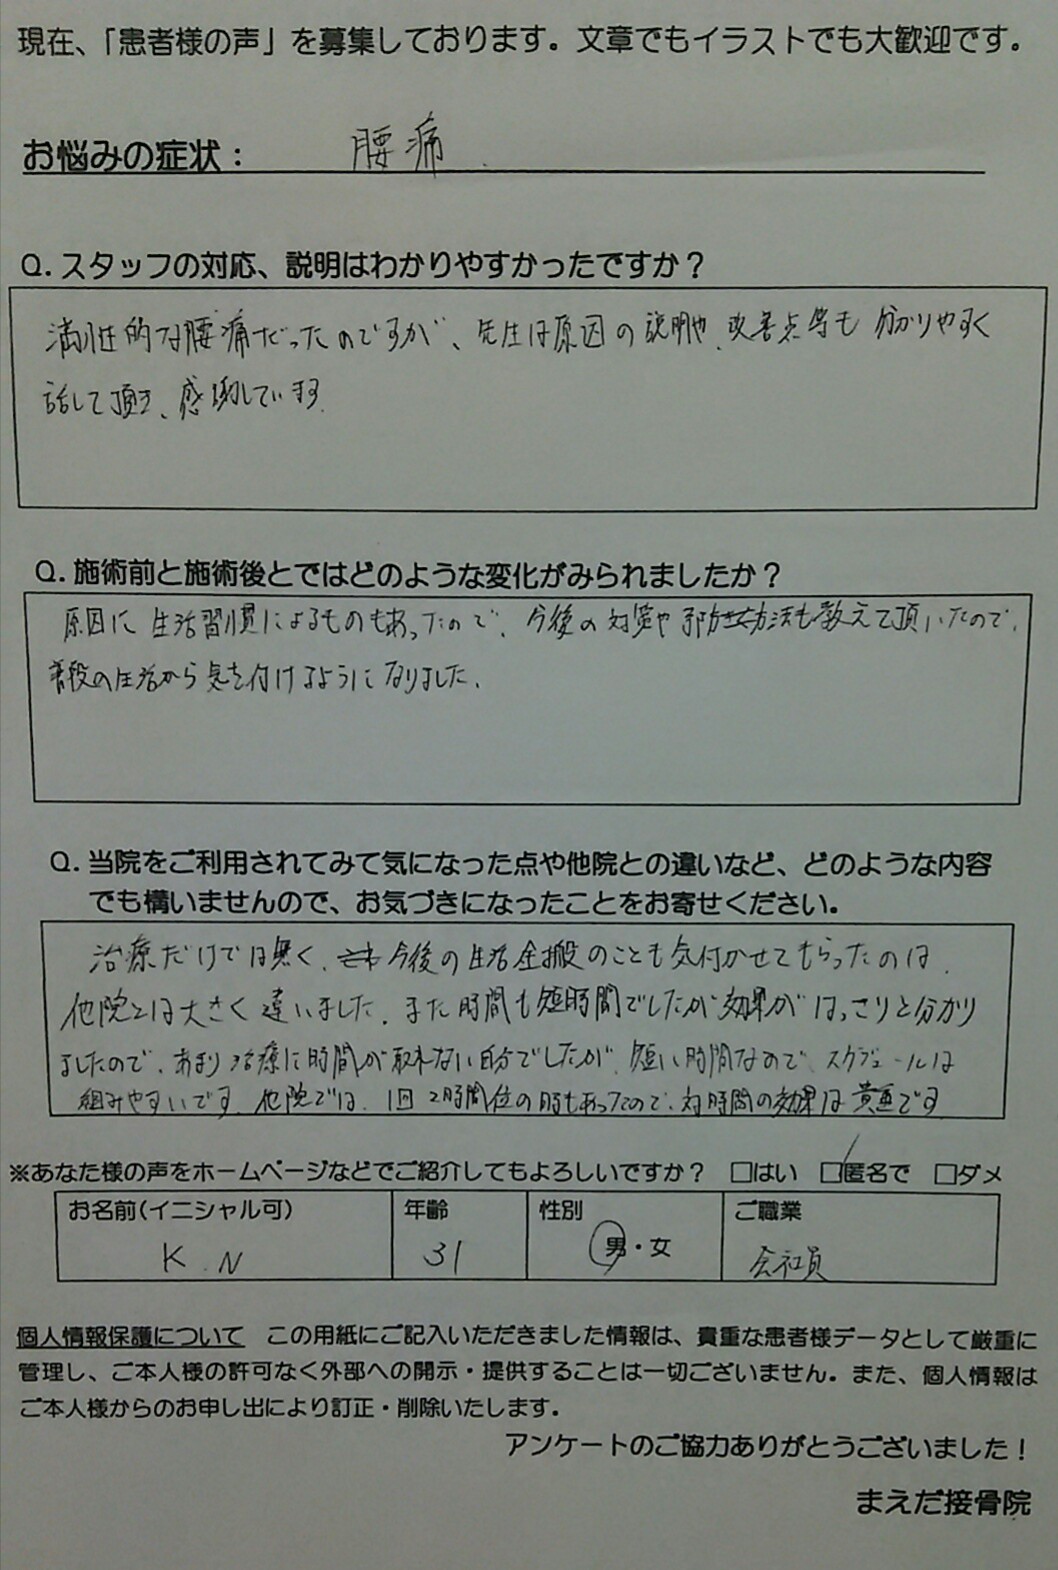 現在、「患者様の声」を募集しております。文章でもイラストでも大歓迎です。
お悩みの症状： 腰痛
Q. スタッフの対応、説明はわかりやすかったですか？
慢性的な腰痛だったのですが、先生は原因の説明や、改善点等も分かりやすく
話して頂き、感謝しています。
Q. 施術前と施術後とではどのような変化がみられましたか？
原因に生活習慣によるものもあったので、今後の対策や予防方法も教えて頂いたので、
普段の生活から気を付けるようになりました。
Q. 当院をご利用されてみて気になった点や他院との違いなど、どのような内容
でも構いませんので、お気づきになったことをお寄せください。
治療だけでは無く、今後の生活全搬のことも気付かせてもらったのは、
他院とは大きく違いました。また時間も短時間でしたが効果がはっきりと分かり
ましたので、あまり治療に時間が取れない自分でしたが、短い時間なので、スケジュールは
組みやすいです。他院では、1回2時間位の時もあったので、対時間の効果は貴重です
※あなた様の声をホームページなどでご紹介してもよろしいですか？ □はい □匿名で □ダメ
お名前(イニシャル可) 年齢 性別 ご職業
K.N 31 男・女 会社員
個人情報保護について この用紙にご記入いただきました情報は、貴重な患者様データとして厳重に
管理し、ご本人様の許可なく外部への開示・提供することは一切ございません。また、個人情報は
ご本人様からのお申し出により訂正・削除いたします。
アンケートのご協力ありがとうございました！
まえだ接骨院